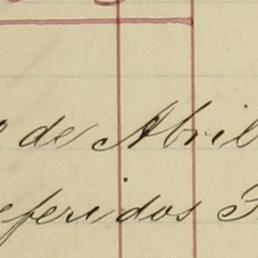 de Abril
eferidos